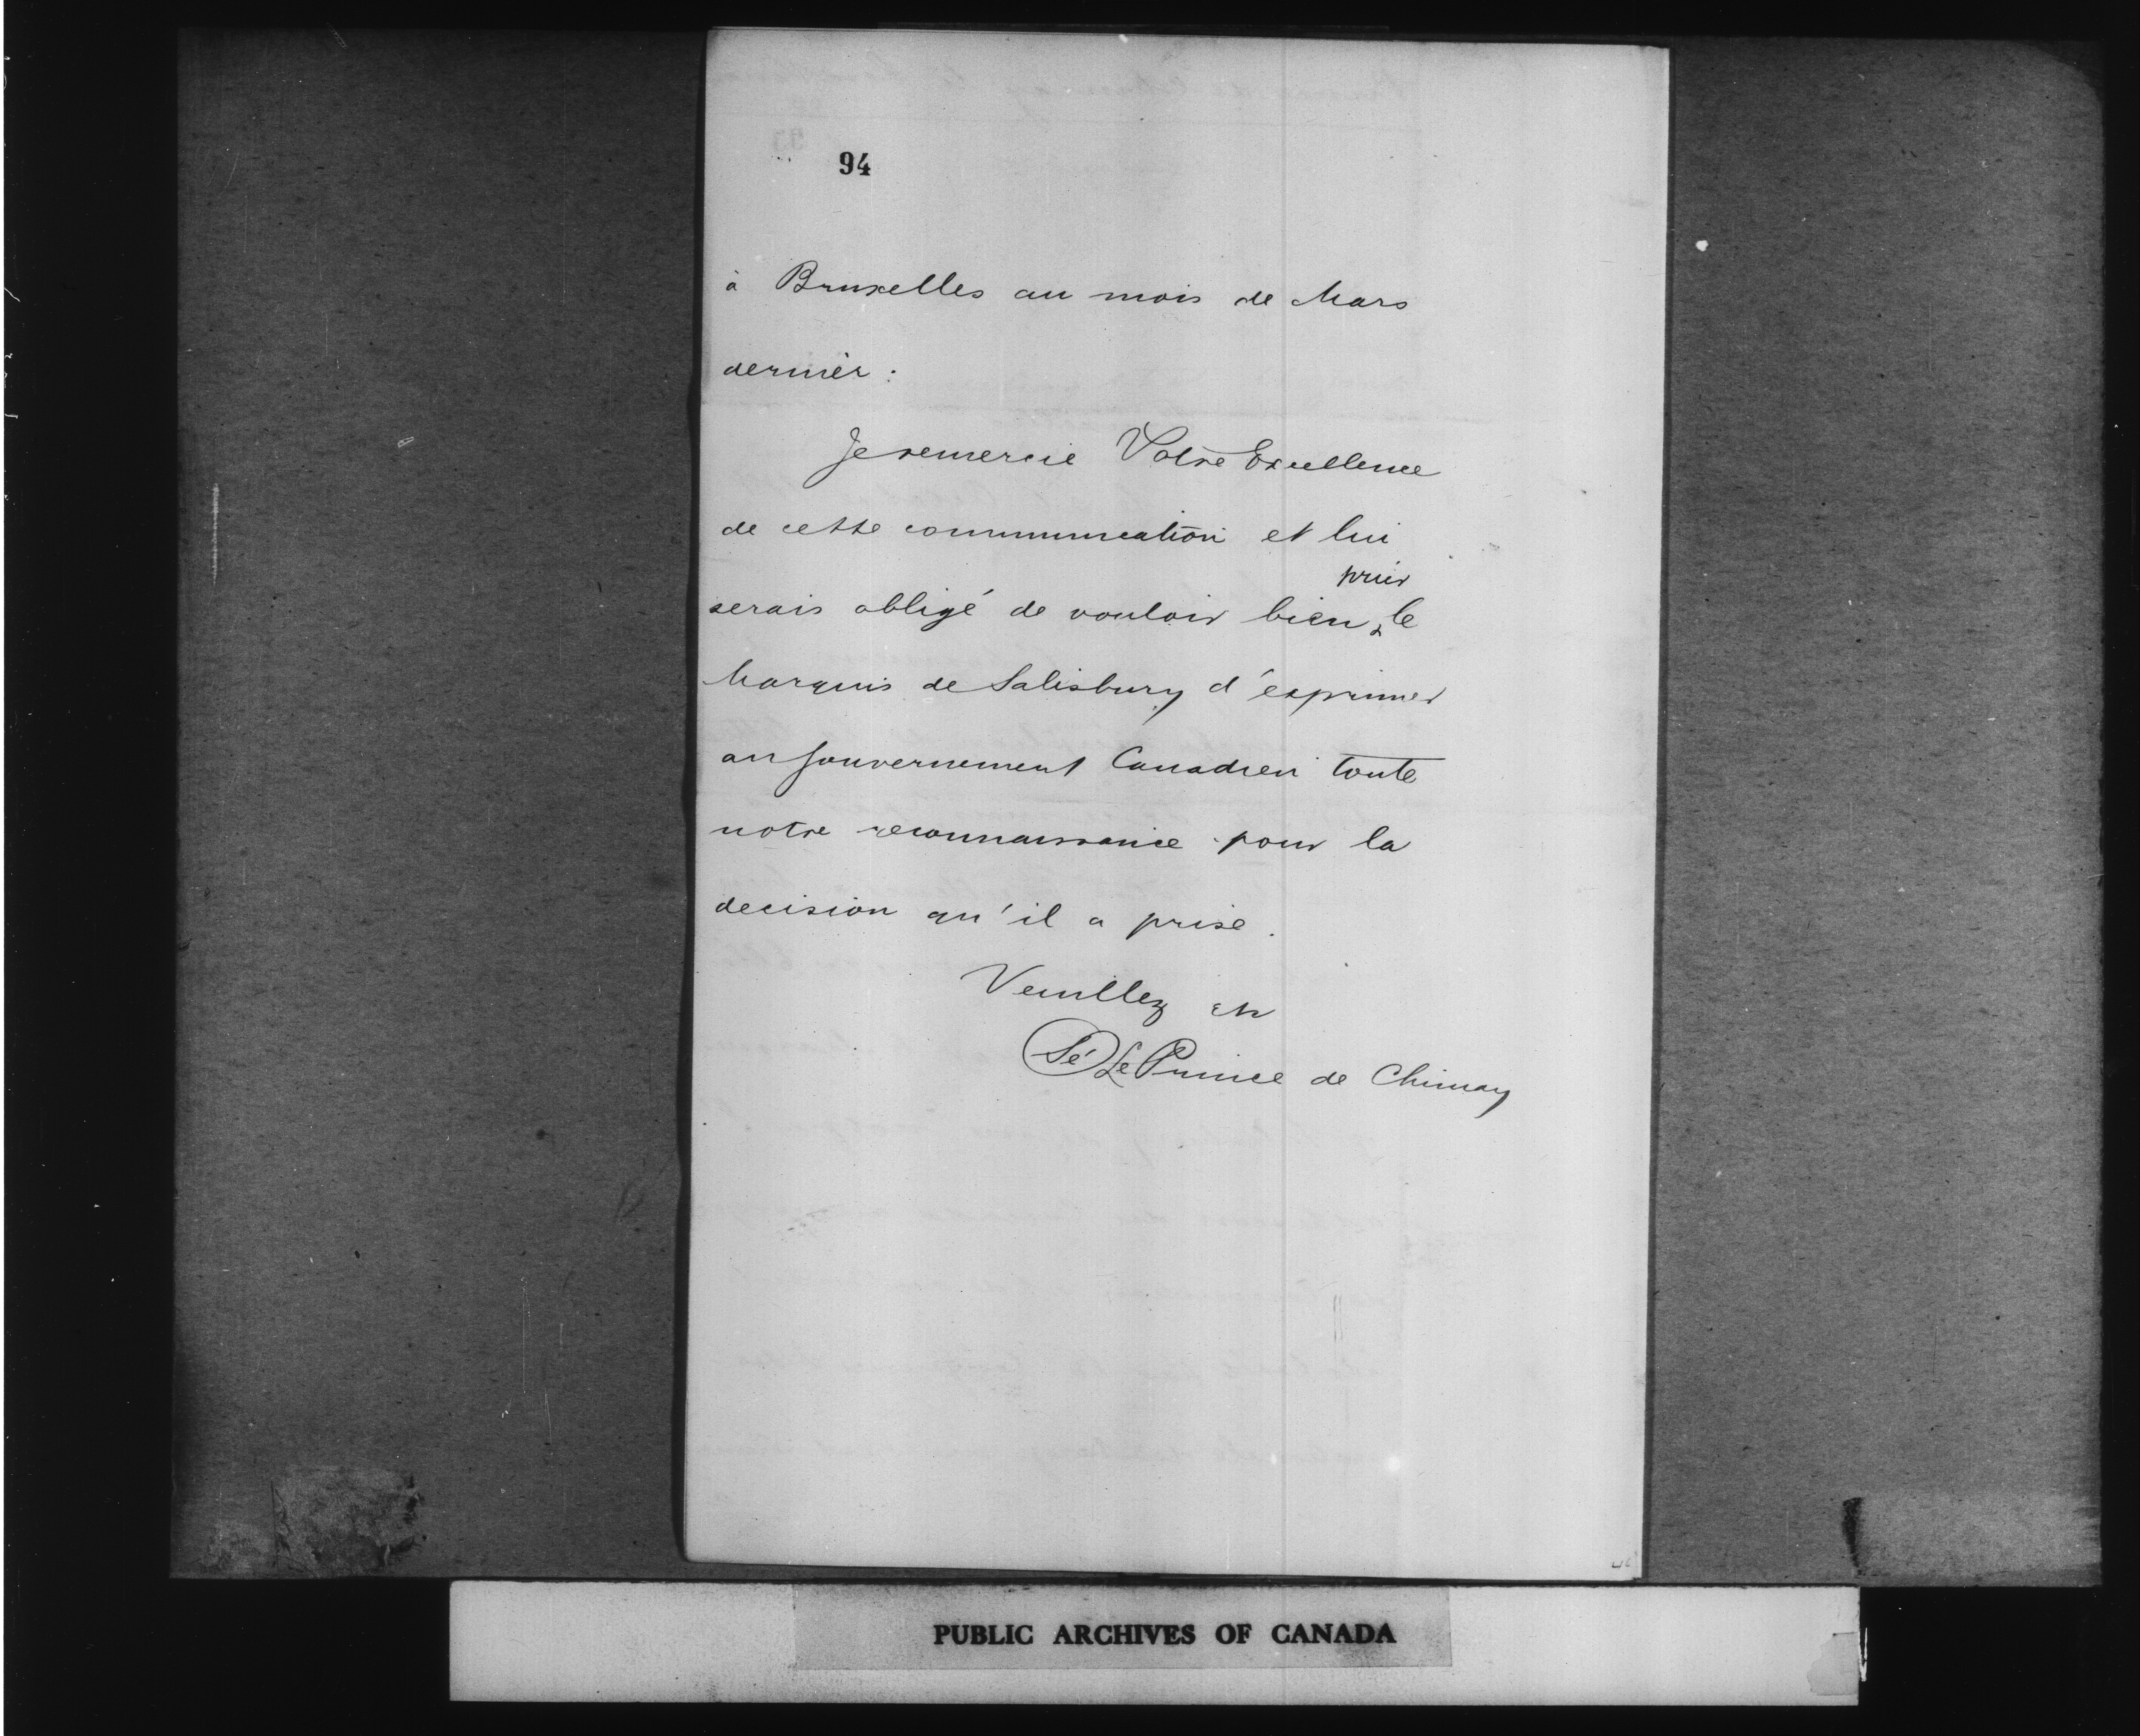 94
à Bruxelles au mois de Mars
dernier :
Je remercie Votre Excellence
de cette communication et lui
prier
serais obligé de vouloir bien ‸ le
Marquis de Salisbury d'exprimer
au Gouvernement Canadien toute
notre reconnaissance pour la
decision qu'il a prise.
Veuillez etc
(Sé) Le Prince de Chimay
PUBLIC ARCHIVES OF CANADA